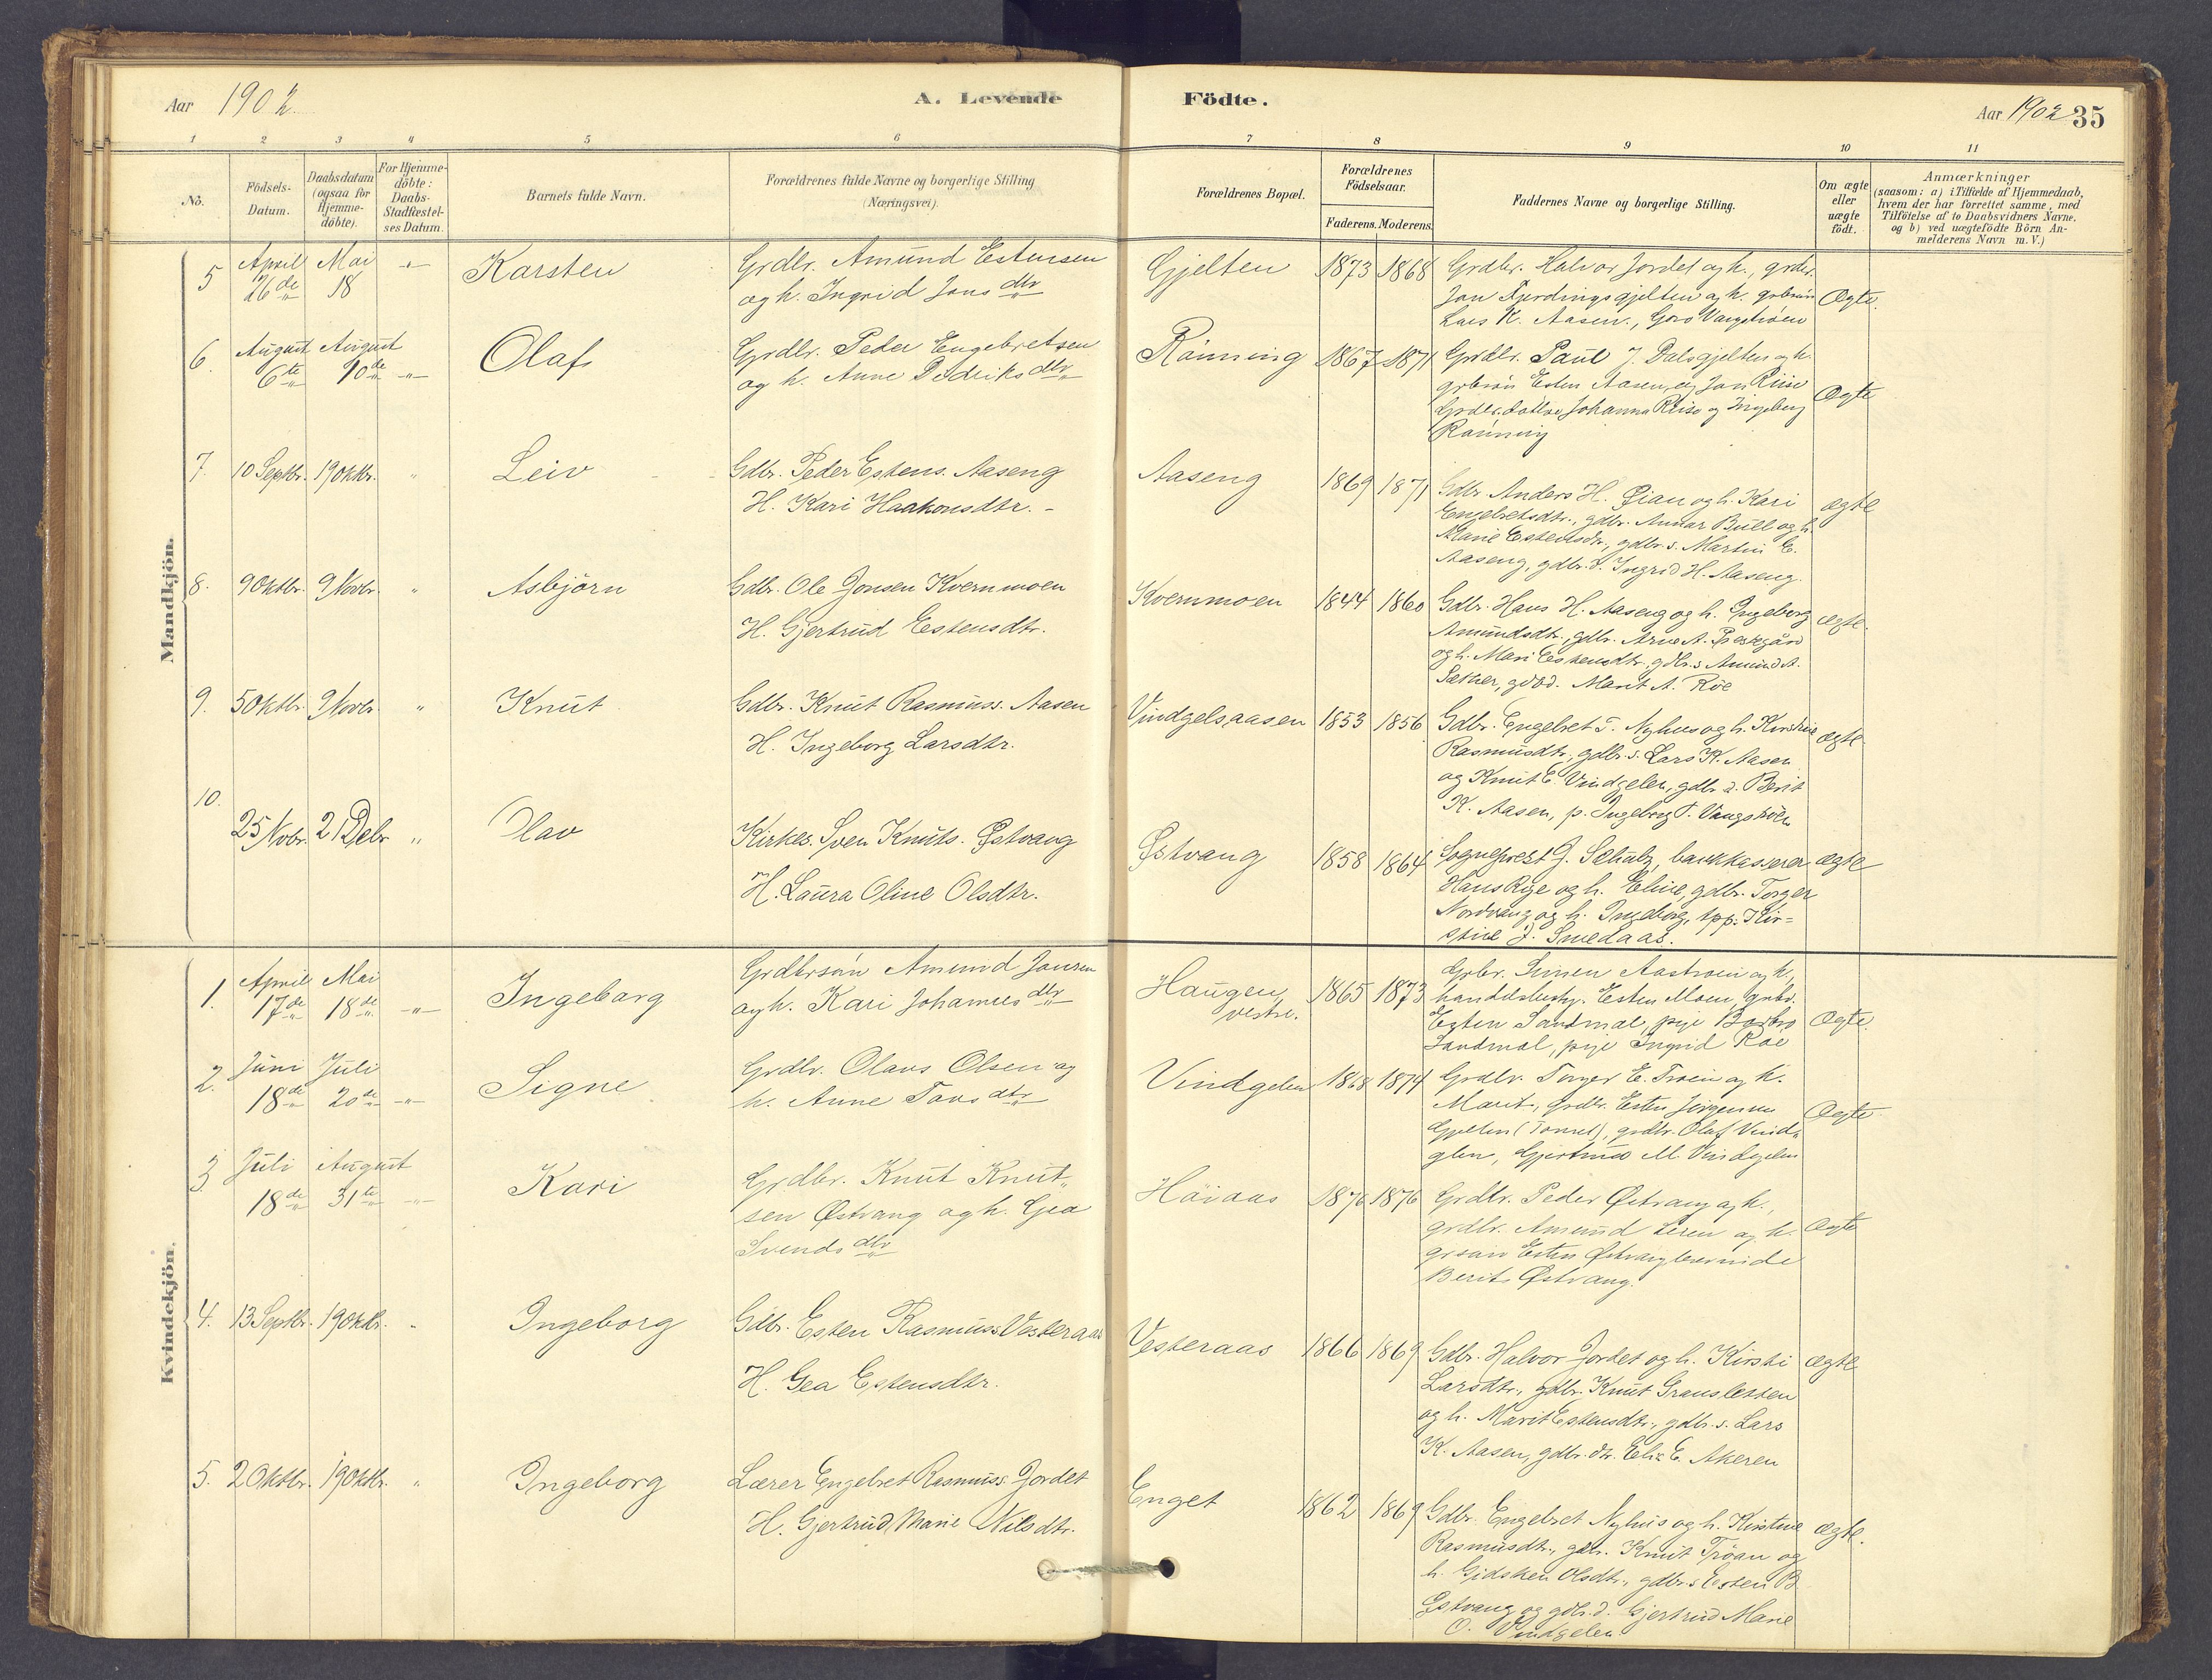 Aar 1902. A. Levende Födte. Aar 1902 35
1 2 3 4 5 6 7 8 9 10 11
No.
Födsels-Datum.
Daabsdatum (ogsaa for Hjemme-döbte).
For Hjemme-döbte: Daabs-Stadfæstel-ses Datum.
Barnets fulde Navn.
Forældrenes fulde Navne og borgerlige Stilling (Næringsvei).
Forældrenes Bopæl.
Forældrenes Födselsaar.
Faderens. Moderens.
Faddernes Navne og borgerlige Stilling.
Om ægte eller uægte födt.
Anmærkninger
(saasom: a) i Tilfælde af Hjemmedaab,
hvem der har forrettet samme, med
Tilföielse af to Daabsvidners Navne.
og b) ved uægtefödte Börn An-
melderens Navn m.V.)
Mandkjön.
5 April 26de Mai 18 -"- Karsten
Grdbr. Amund Estensen
og h. Ingrid Jonsdtr
Gjelten 1873 1868
Grdbr. Halvor Jordet og h., grdbr.
Jon Fjerdingsgjelten og h. grbrsön
Lars K. Aasen., Goro Vangströen
Ægte.
6. August 6te August 10de -"- Olaf
Grdbr. Peder Engebretsen
og h. Anne Pedriksdtr
Rönning 1867 1871
Grdbr. Paul J. Dalsgjelten og h.
grbrsön Esten Aasen, og Jon Riise
Grdbr.datter Johanna Riise og Ingeborg
Rönning
Ægte
7. 10 Septbr. 19 Oktbr. " Leiv
Gdbr. Peder Estens. Aaseng
H. Kari Haakonsdtr. -
Aaseng 1869 1871
Gdbr. Anders H. Öian og h. Kari
Engebretsdtr., gdbr. Annar Bull og h.
Marie Estensdtr., gdbr.s. Martin E.
Aaseng, gdbr.d. Ingrid H. Aaseng.
ægte
8. 9 Oktbr. 9 Novbr. " Asbjörn
Gdbr. Ole Jonsen Kvernmoen
H. Gjertrud Estensdtr.
Kvernmoen 1844 1860
Gdbr. Hans H. Aaseng og h. Ingeborg
Amundsdtr., gdbr. Arne A.
og h. Mari Estensdtr., gdbr.s Amund A.
Sæther, gdbd. Marit A. Röe
ægte.
9. 5 Oktbr. 9 Novbr. " Knut
Gdbr. Knut Rasmuss. Aasen
H. Ingeborg Larsdtr.
Vindgelsaasen 1853 1856
Gdbr. Engebret T. Nyhus og h. Kirstine
Rasmusdtr., gdbr.s. Lars K. Aasen
og Knut E. Vindgelen, gdbr.d. Berit
K. Aasen, p. Ingeborg T. Vangströen
ægte.
10. 25 Novbr. 21 Debr " Olav
Kirkes. Sven Knuts. Østvang
H. Laura Oline Olsdtr.
Østvang 1858 1864
Sogneprest J. Schulz, bankkasserer
Hans Rye og h. Eline, gdbr. Torger
Nordvang og h. Ingeborg, tpp. Kir=
stine J. Smedaas.
ægte
Kvindekjön.
1. April 17de Mai 18de -"- Ingeborg
Grdbrsön Amund Jonsen
og h. Kari Johannesdtr
Haugen, vestre. 1865 1873
Grbr. Simen Aastroen og h.,
handelsbest. Esten Moen, grbr.
Esten Sandmal, pige Barbro
Sandmal, pige Ingrid Röe
Ægte.
2. Juni 18de Juli 20de -"- Signe
Grdbr. Olaus Olsen og
h. Anne Tordsdtr
Vindgelen 1868 1874
Grdbr. Torger E. Troen og h.
Marit, grdbr. Esten Jörgensen
Gjelten (Tonset), grdbr. Olaf Vind-
glen, Gjertrud M. Vindgelen
Ægte
3. Juli 18de August 31te -"- Kari
Grdbr. Knut Knut-
sen Østvang og h. Gea
Svendsdtr
Höiaas 1876 1876
Grdbr. Peder Østvang og h.,
grdbr. Amund Leren og h.
grsøn Esten Østvang
Berit Østvang.
Ægte
4. 13 Septbr. 19 Oktbr. " Ingeborg
Gdbr. Esten Rasmuss Vesteraas
H. Gea Estensdtr.
Vesteraas 1866 1869
Gdbr. Halvor Jordet og h. Kirsti
Larsdtr., gdbr. Knut Granslettен
og h. Marit Estensdtr., gdbr.s. Lars
K. Aasen, gdbr.dtr. Elie E. Akeren
ægte
5. 2 Oktbr. 19 Oktbr. " Ingeborg
Lærer Engebret Rasmuss. Jordet
H. Gjertrud Marie Nilsdtr.
Enget 1862 1869
Gdbr. Engebret Nyhus og h. Kirstine
Rasmusdtr., gdbr. Knut Tröan og
h. Gidsken Olsdtr., gdbr.s Esten B.
Østvang og gdbr.d. Gjertrud Marie
O. Vindgelen.
ægte.